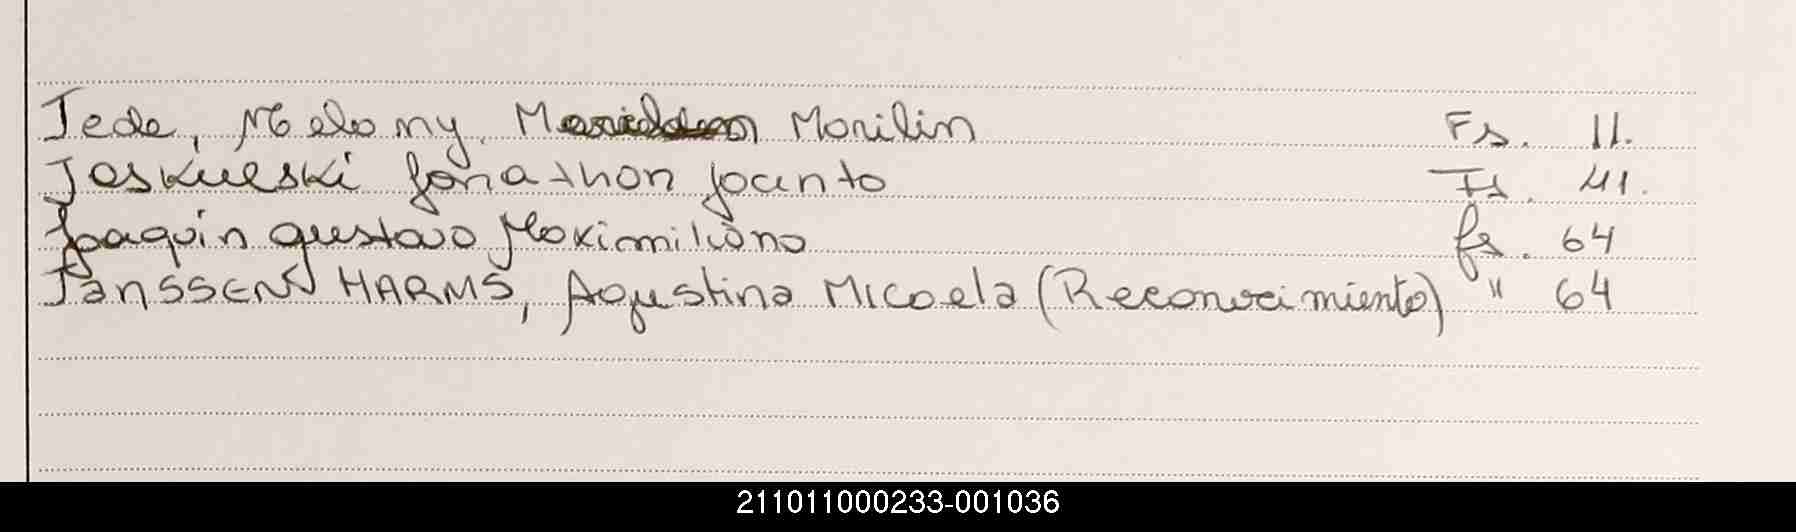 Jede, Melany Marilin Fs. 11.
Jaskueski Jonathan Jacinto Fs. 41.
Joaquin Gustavo Maximiliano fs. 64
JANSSENS HARMS, Agustina Micaela (Reconocimiento) " 64
211011000233-001036